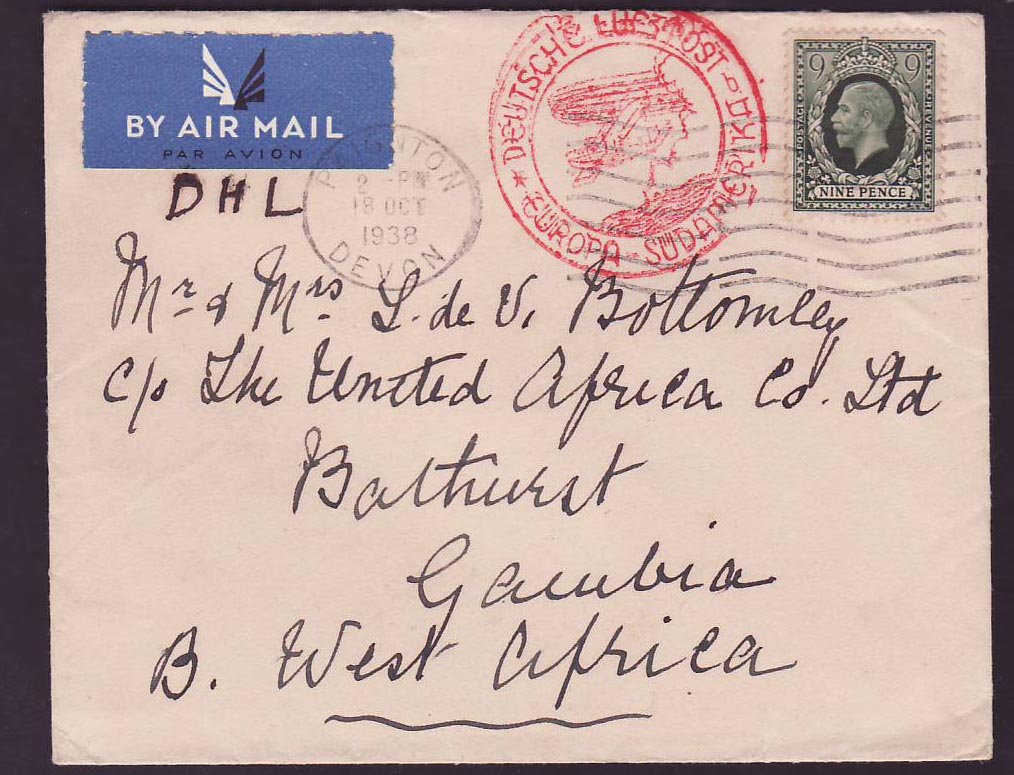 BY AIR MAIL
PAR AVION
DHL
PAIGNTON
2 - PM
18 OCT
1938
DEVON
* DEUTSCHE LUFTPOST *
EUROPA - SÜDAMERIKA
9 9
POSTAGE
REVENUE
NINE PENCE
Mr & Mrs L. de V. Bottomley
c/o The United Africa Co. Ltd
Bathurst
Gambia
B. West Africa